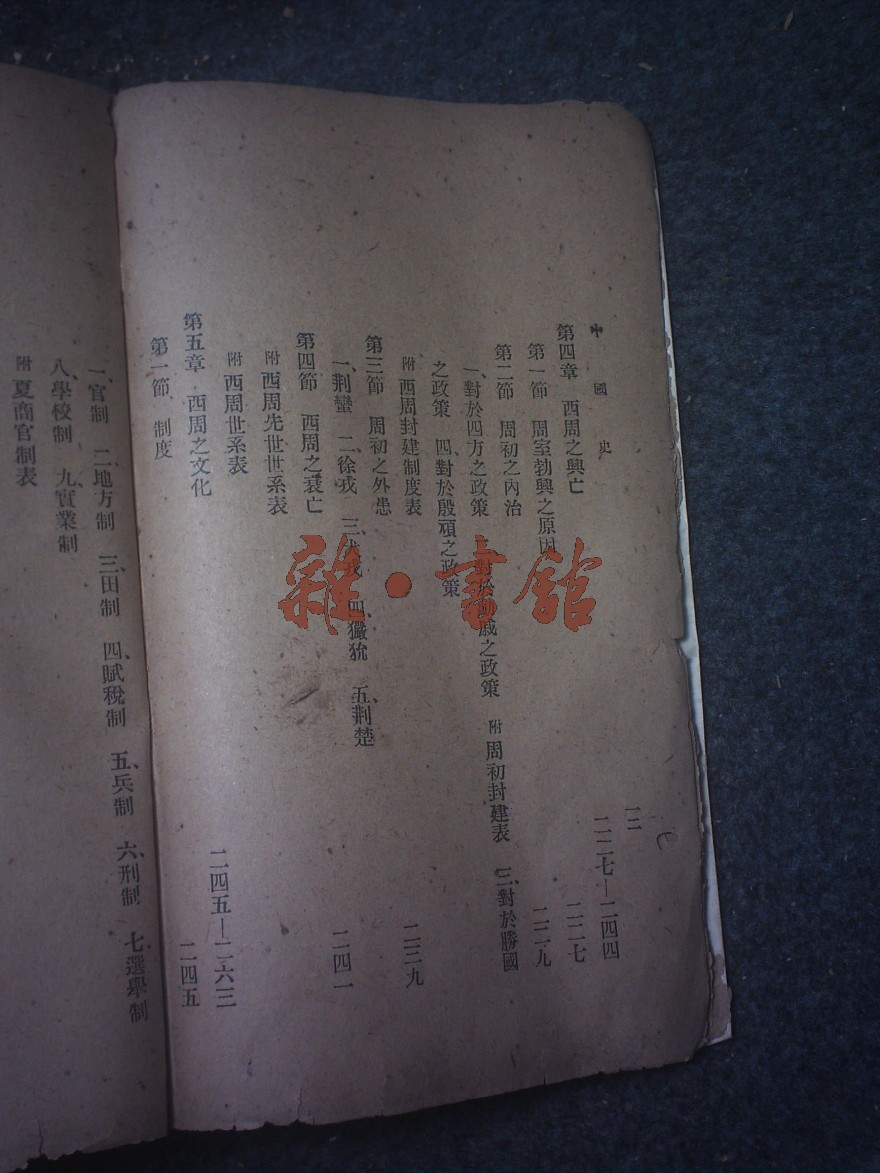 中國史 一二
第四章 西周之興亡 二二七—二四四
第一節 周室勃興之原因 二二七
第二節 周初之內治 二二九
一、對於四方之政策 對於 戚之政策 附 周初封建表 三、對於勝國
之政策 四、對於殷頑之政策
附 西周封建制度表
第三節 周初之外患 二三九
一、荆蠻 二、徐戎 三、犬戎 四、玁狁 五、荆楚
第四節 西周之衰亡 二四一
附 西周先世世系表
附 西周世系表
第五章 西周之文化 二四五—二六三
第一節 制度 二四五
一、官制 二、地方制 三、田制 四、賦稅制 五、兵制 六、刑制 七、選舉制
八、學校制 九、實業制
附 夏商官制表
雜·書館